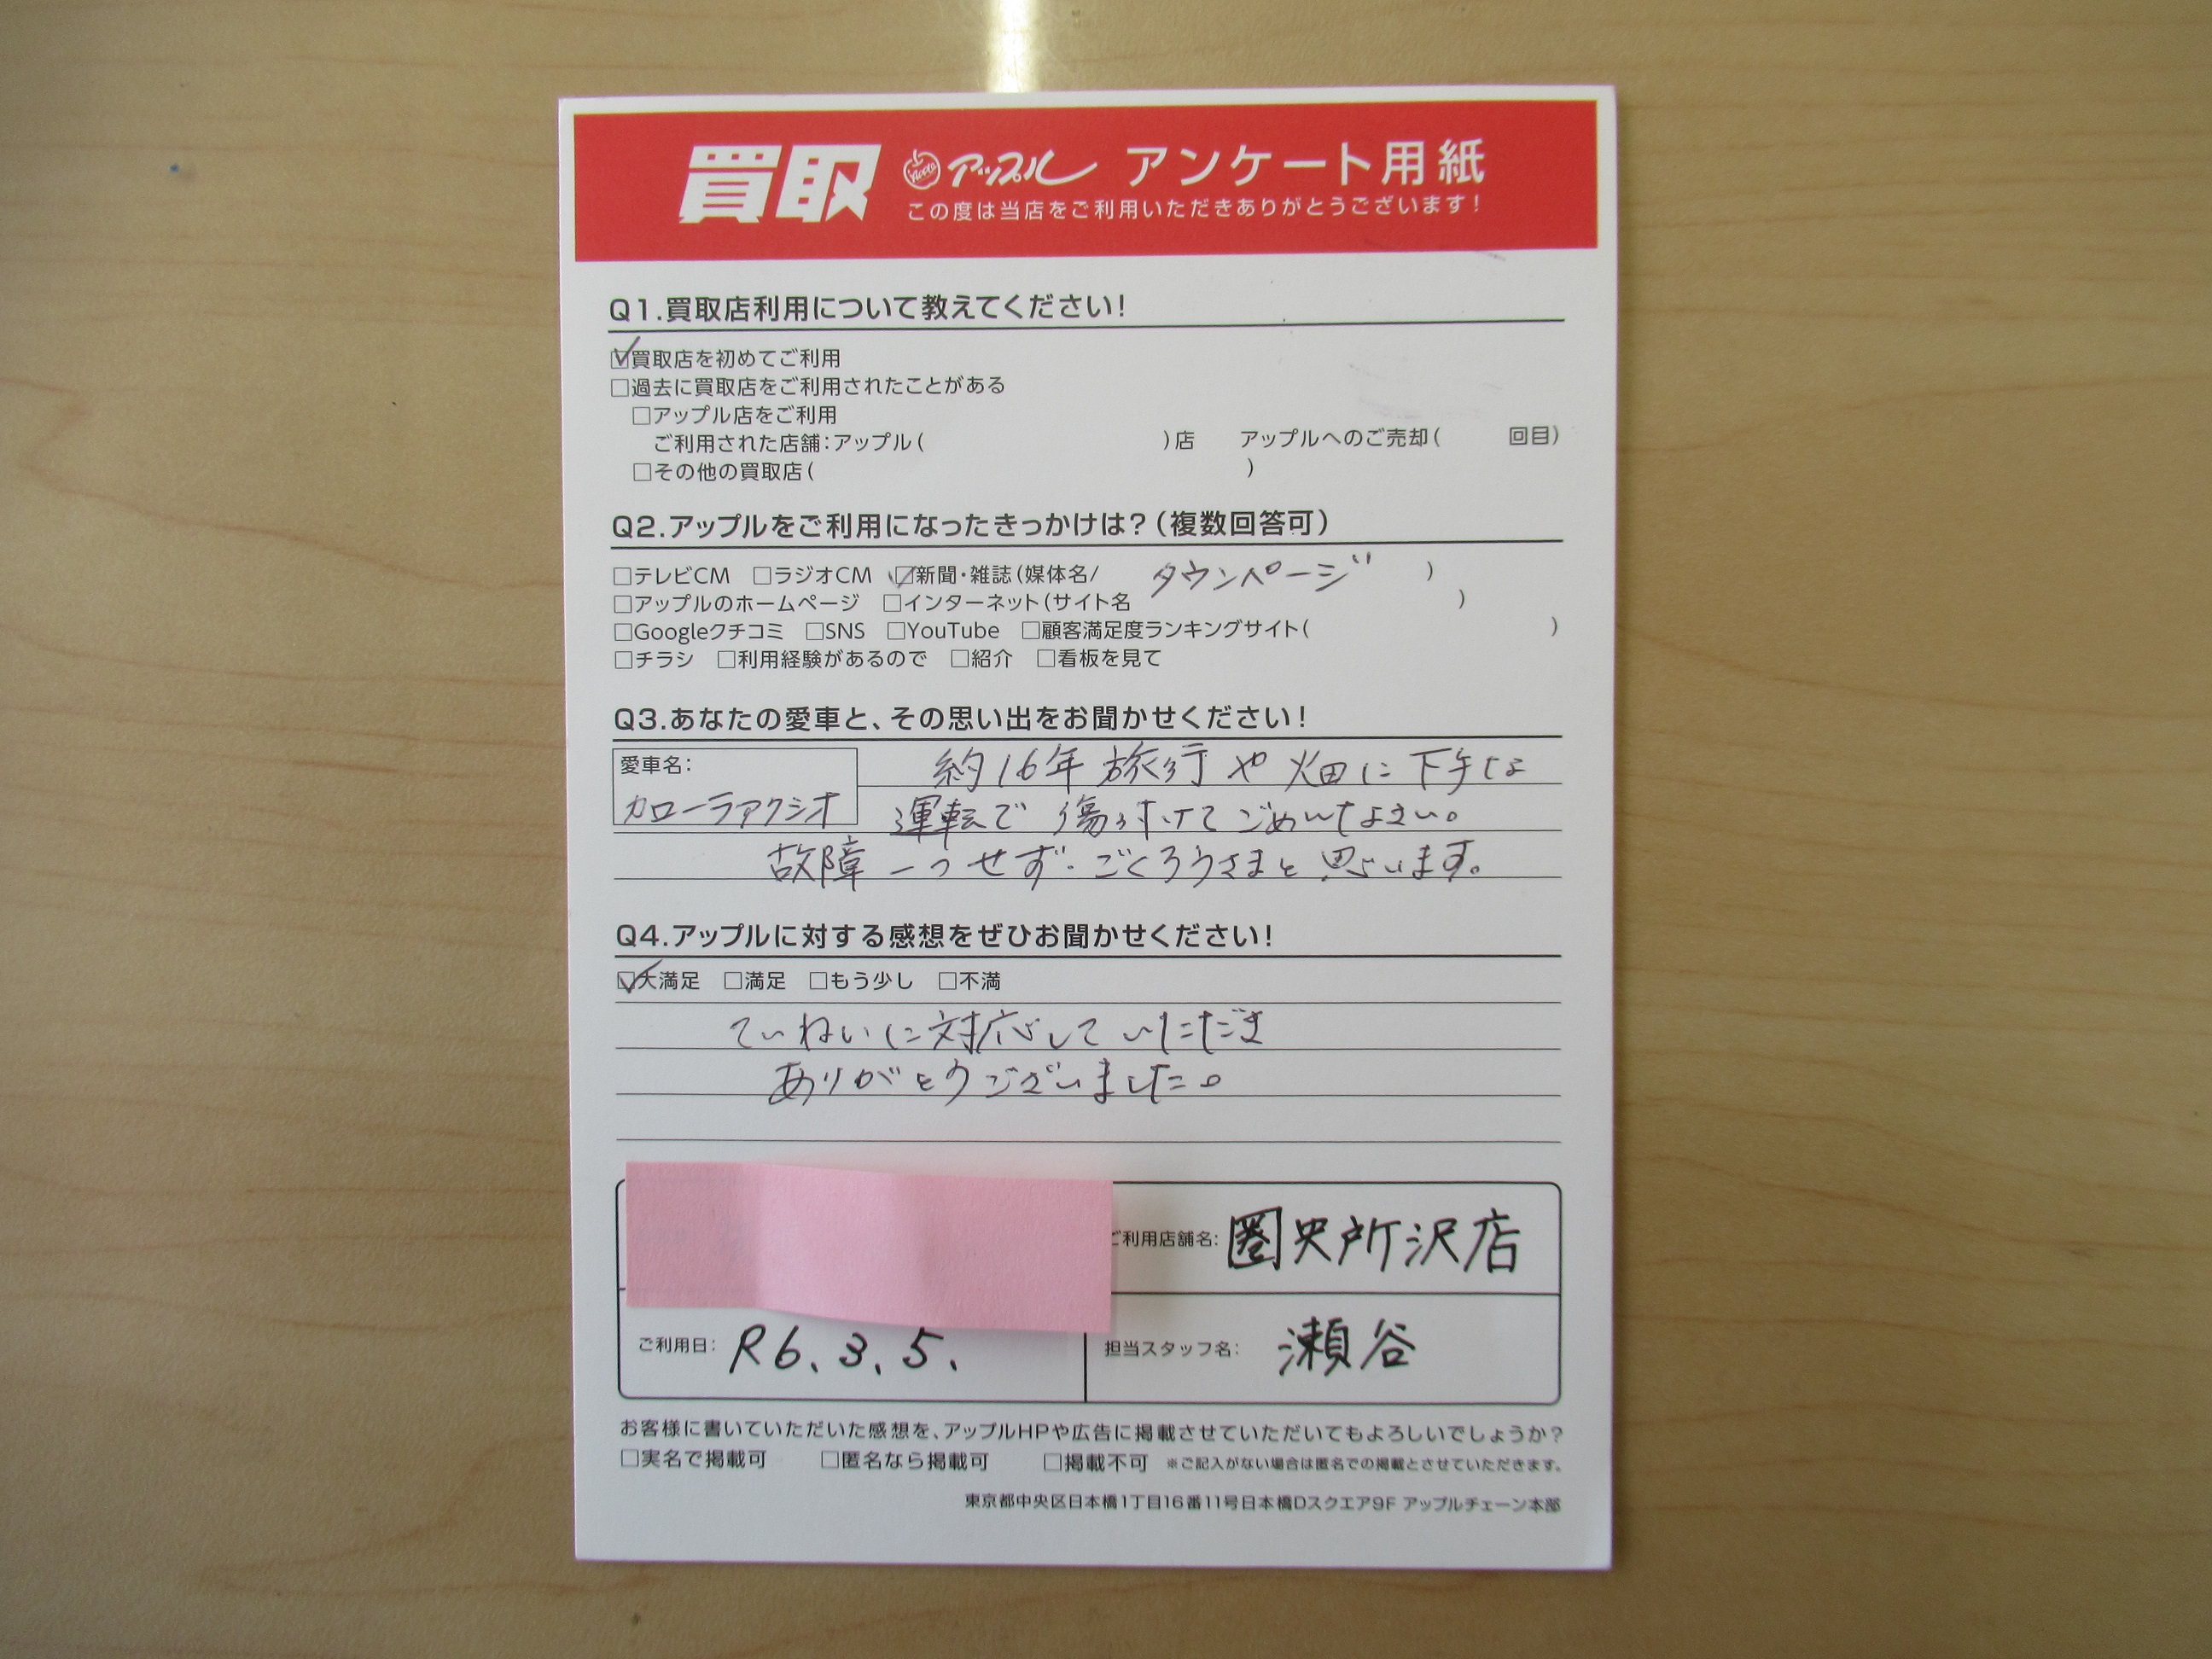 買取 アップル アンケート用紙
この度は当店をご利用いただきありがとうございます!
Q1.買取店利用について教えてください!
☑買取店を初めてご利用
□過去に買取店をご利用されたことがある
□アップル店をご利用
ご利用された店舗:アップル( )店 アップルへのご売却( 回目)
□その他の買取店( )
Q2.アップルをご利用になったきっかけは?(複数回答可)
□テレビCM □ラジオCM ☑新聞・雑誌(媒体名/ タウンページ )
□アップルのホームページ □インターネット(サイト名 )
□Googleクチコミ □SNS □YouTube □顧客満足度ランキングサイト( )
□チラシ □利用経験があるので □紹介 □看板を見て
Q3.あなたの愛車と、その思い出をお聞かせください!
愛車名: 約16年旅行や畑に下手な
カローラアクシオ 運転で傷つけてごめんなさい。
故障一つせず.ごくろうさまと思います。
Q4.アップルに対する感想をぜひお聞かせください!
☑大満足 □満足 □もう少し □不満
ていねいに対応していただき
ありがとうございました。
ご利用店舗名: 圏央所沢店
ご利用日: R6.3.5. 担当スタッフ名: 瀬谷
お客様に書いていただいた感想を、アップルHPや広告に掲載させていただいてもよろしいでしょうか?
□実名で掲載可 □匿名なら掲載可 □掲載不可 ※ご記入がない場合は匿名での掲載とさせていただきます。
東京都中央区日本橋1丁目16番11号日本橋Dスクエア9F アップルチェーン本部